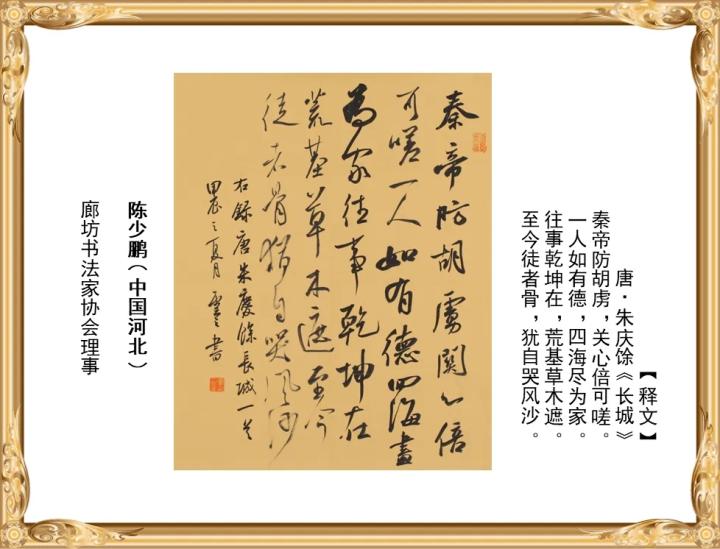 【释文】
唐·朱庆馀《长城》
秦帝防胡虏，关心倍可嗟。
一人如有德，四海尽为家。
往事乾坤在，荒基草木遮。
至今徒者骨，犹自哭风沙。
秦帝防胡虜關心倍
可嗟一人如有德四海盡
為家往事乾坤在
荒基草木遮至今
徒者骨猶自哭風沙
右録唐朱慶餘長城一首
甲辰之夏月 書
陈少鹏（中国河北）
廊坊书法家协会理事